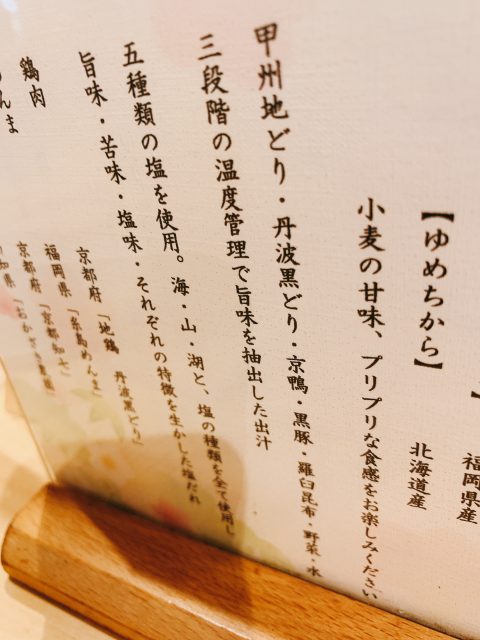 福岡県産
【ゆめちから】 北海道産
小麦の甘味、プリプリな食感をお楽しみください
甲州地どり・丹波黒どり・京鴨・黒豚・羅臼昆布・野菜・水
三段階の温度管理で旨味を抽出した出汁
五種類の塩を使用。海・山・湖と、塩の種類を全て使用し
旨味・苦味・塩味・それぞれの特徴を生かした塩だれ
鶏肉 京都府「地鶏 丹波黒どり」
福岡県「糸島めんま」
京都府「京都知七」